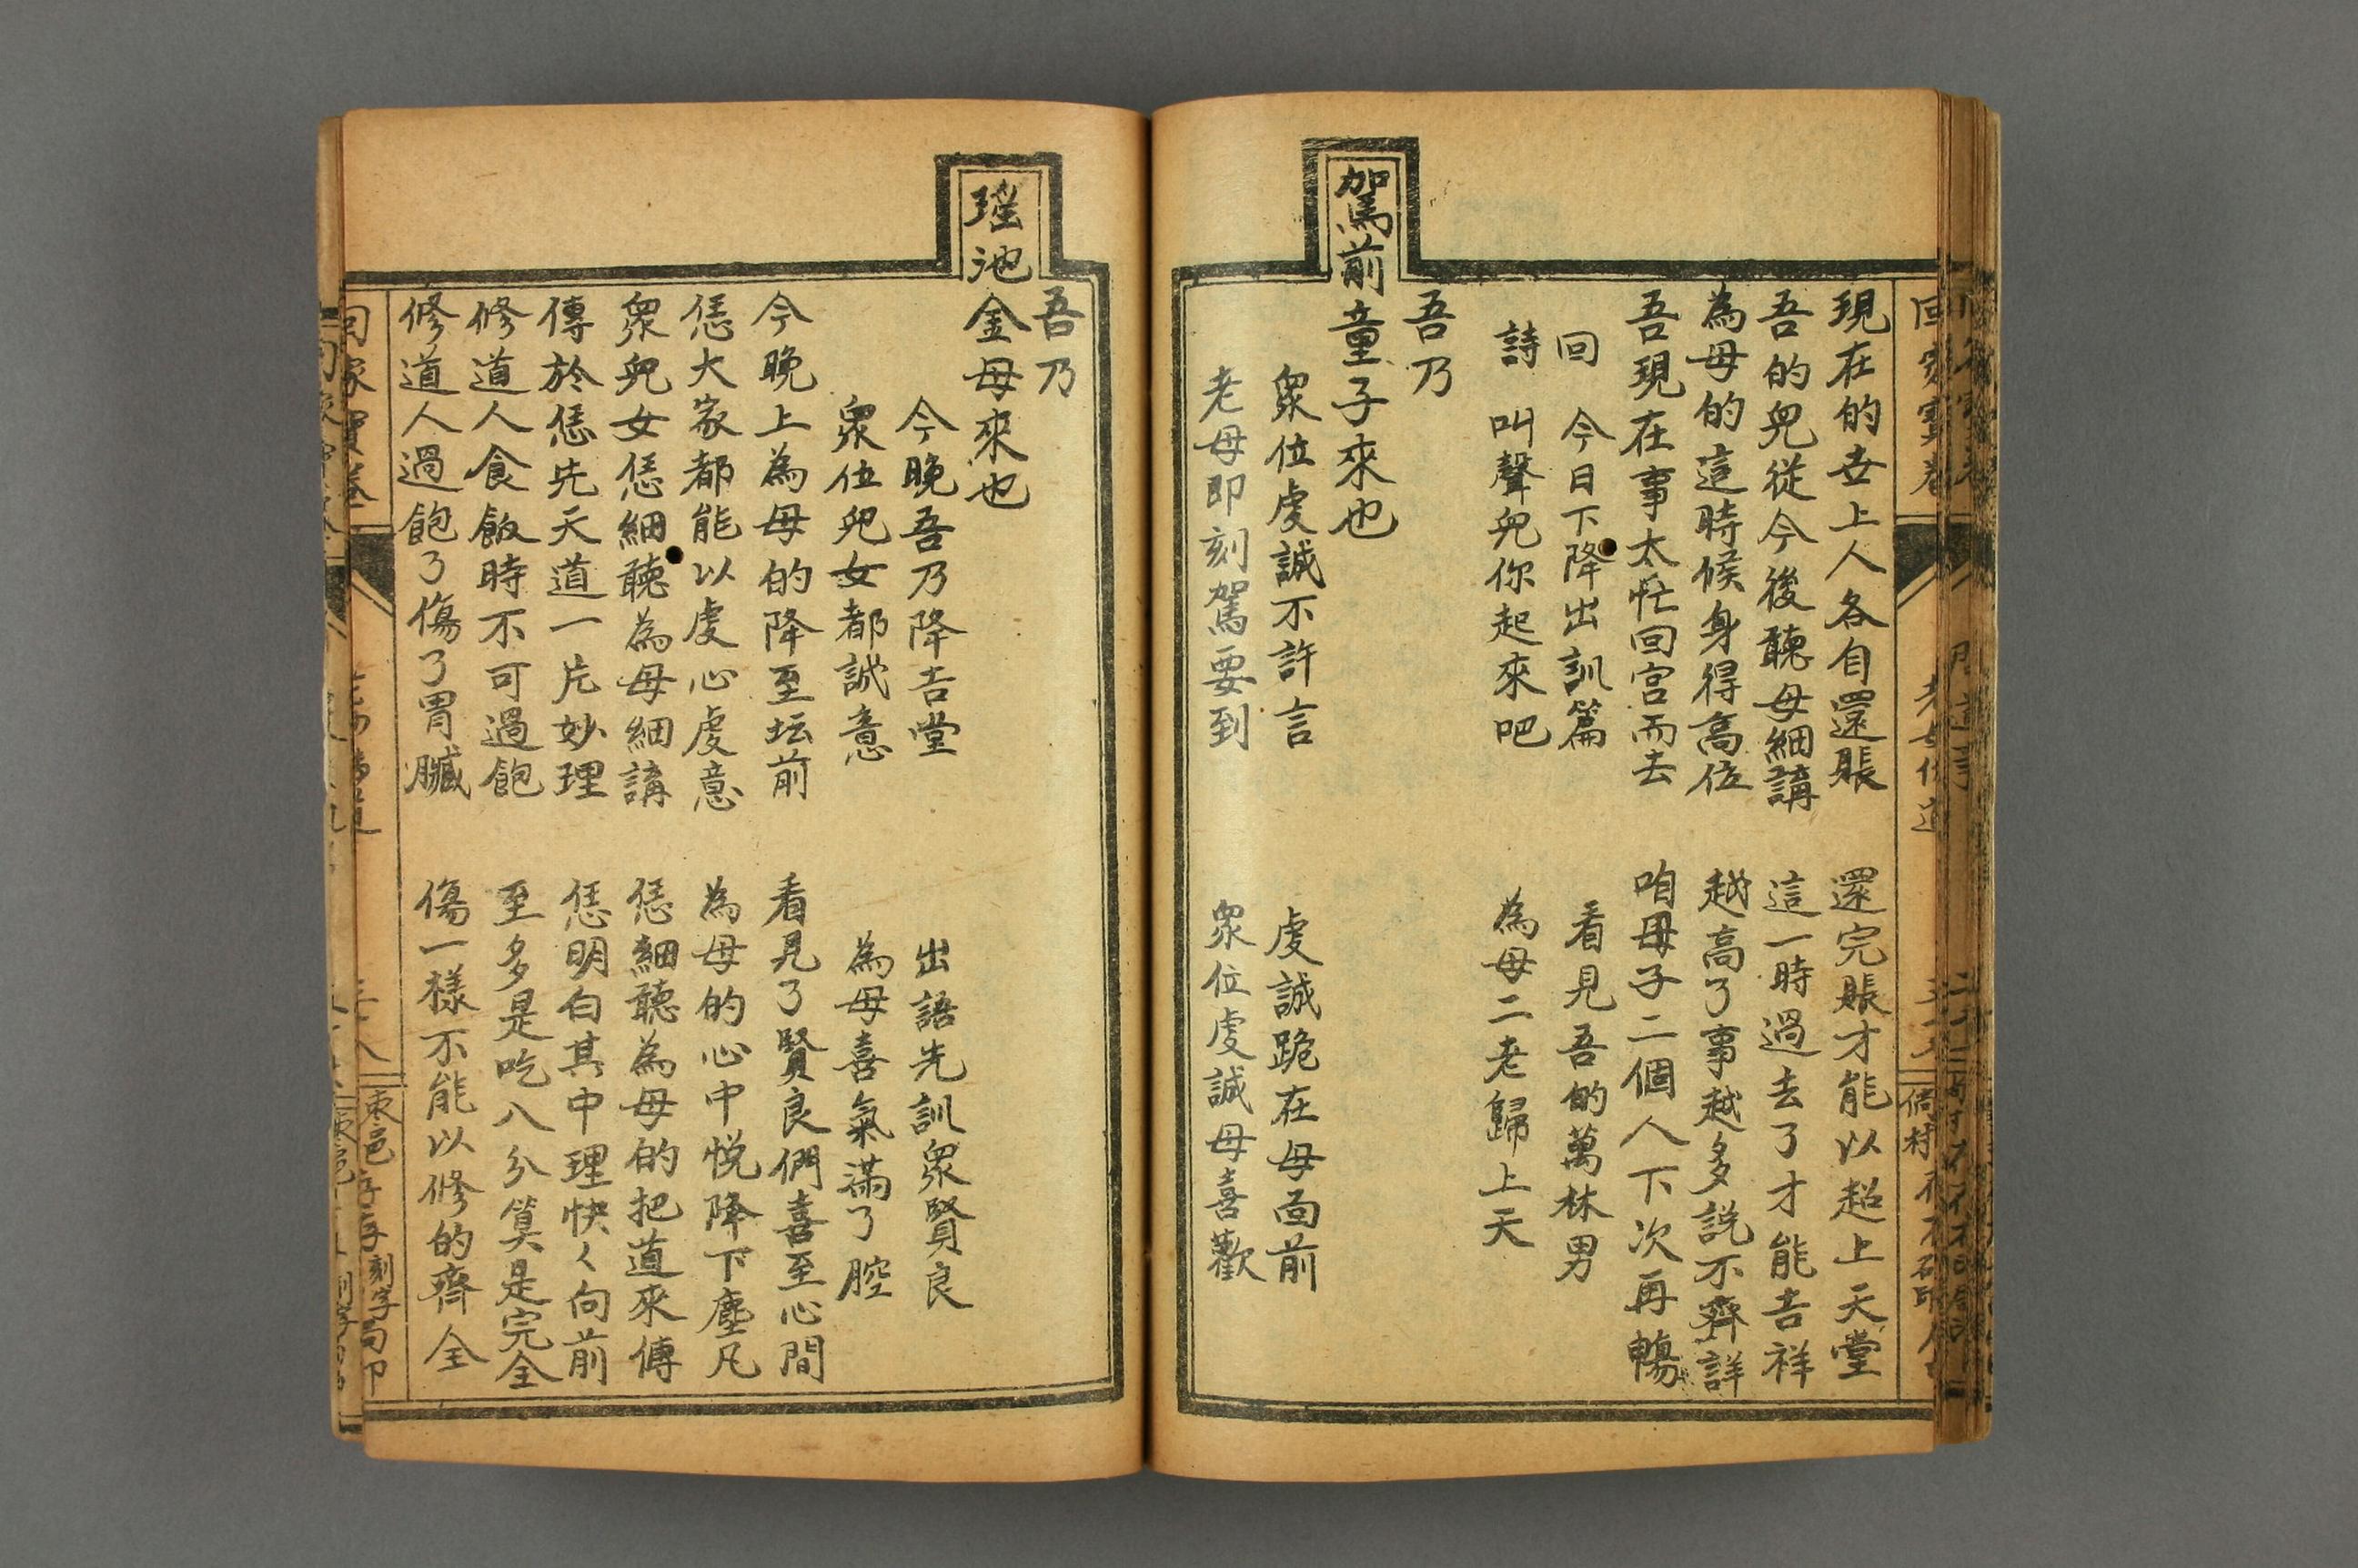 現在的世上人各自還賬　還完賬才能以超上天堂
吾的兒從今後聽母細講　這一時過去了才能吉祥
為母的這時候身得高位　越高了事越多説不齊詳
吾現在事太忙回宮而去　咱母子二個人下次再暢
回　今日下降出訓篇　看見吾的萬林男
詩　叫聲兒你起來吧　為母二老歸上天
吾乃
駕前童子來也
眾位虔誠不許言　虔誠跪在母面前
老母即刻駕要到　眾位虔誠母喜歡
吾乃
瑤池金母來也
今晚吾乃降吉堂　出語先訓眾賢良
眾位兒女都誠意　為母喜氣滿了腔
今晚上為母的降至坛前　看見了賢良們喜至心間
恁大家都能以虔心虔意　為母的心中悦降下塵凡
眾兒女恁細聽為母細講　恁細聽為母的把道來傳
傳於恁先天道一片妙理　恁明白其中理快々向前
修道人食飯時不可過飽　至多是吃八分算是完全
修道人過飽了傷了胃臟　傷一樣不能以修的齊全
回家寶卷
東邑
刻字局印